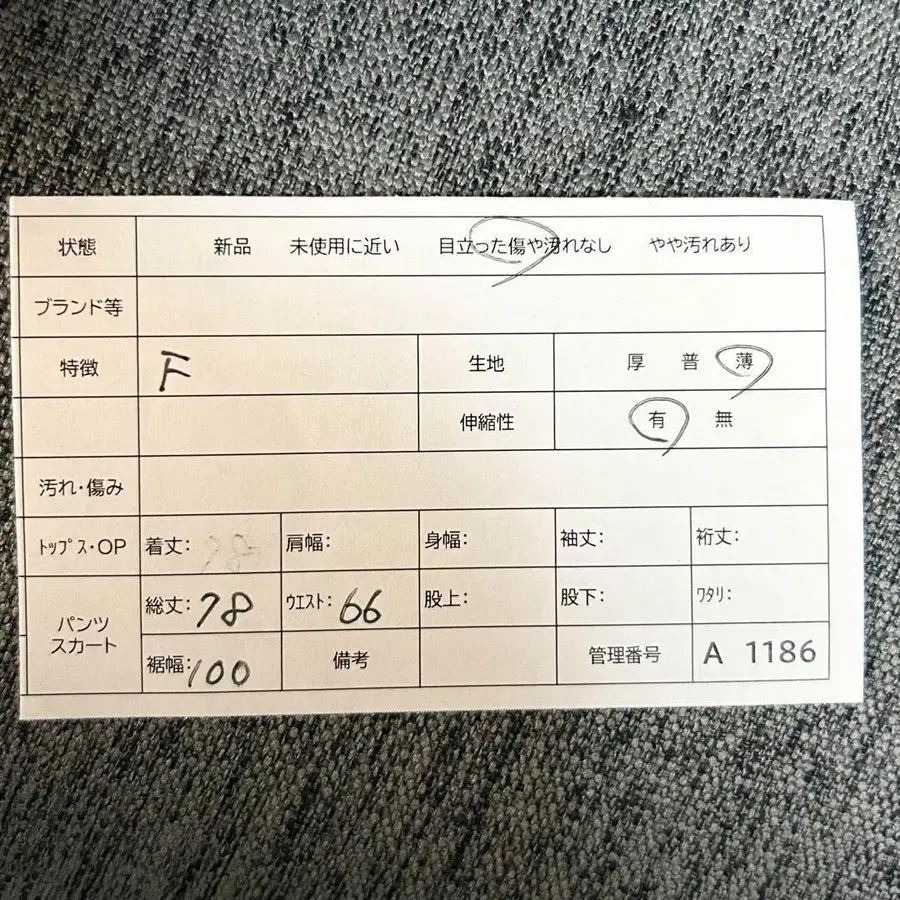 状態 新品 未使用に近い 目立った傷や汚れなし やや汚れあり
ブランド等
特徴 F 生地 厚 普 薄
伸縮性 有 無
汚れ・傷み
トップス・OP 着丈: 肩幅: 身幅: 袖丈: 裄丈:
パンツ スカート
総丈:78 ウエスト:66 股上: 股下: ワタリ:
裾幅:100 備考 管理番号 A 1186